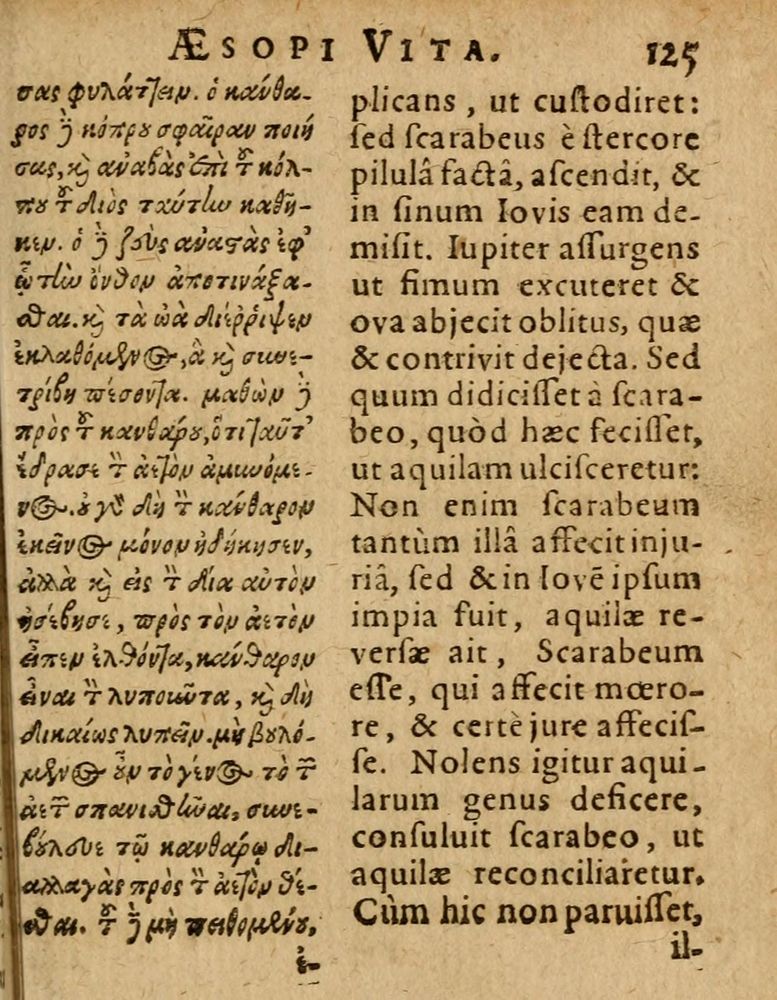 ÆSOPI VITA. 125
σας φυλάτ]ειν. ὁ κάνθα-
ρος ἢ κόπρου σφαῖραν ποιή
σας, καὶ ἀναβὰς ἐπὶ τ κόλ-
που τ Διὸς ταύτην καθῆ-
κεν. ὁ ἢ ζεὺς ἀναστὰς ἐφ᾽
ᾧ τὴν ὄνθον ἀποτινάξα-
σθαι. καὶ τὰ ὠὰ διέῤῥιψεν
ἐκλαθόμενος, ἃ καὶ συνε-
τρίβη πεσόντα. μαθὼν ἢ
πρὸς τ κανθάρου, ὅτι ταῦτ᾽
ἔδρασε τ ἀετὸν ἀμυνόμε-
νος. οὐ γὰρ δὴ τ κάνθαρον
ἐκεῖνος μόνον ἠδίκησεν,
ἀλλὰ καὶ εἰς τ Δία αὐτὸν
ἠσέβησε, πρὸς τὸν ἀετὸν
εἶπεν ἐλθόντα, κάνθαρον
εἶναι τ λυποῦντα, καὶ δὴ
δικαίως λυπεῖν. μὴ βουλό-
μενος οὖν τὸ γένος τὸ τ
ἀετ σπανισθῆναι, συνε-
βούλευε τῷ κανθάρῳ δι-
αλλαγὰς πρὸς τ ἀετὸν θέ-
σθαι. τ ἢ μὴ πειθομένου,
ἐ-
plicans, ut cuſtodiret:
ſed ſcarabeus è ſtercore
pilulâ factâ, aſcendit, &
in ſinum Iovis eam de-
miſit. Iupiter aſſurgens
ut fimum excuteret &
ova abjecit oblitus, quæ
& contrivit dejecta. Sed
quum didiciſſet à ſcara-
beo, quòd hæc feciſſet,
ut aquilam ulciſceretur:
Non enim ſcarabeum
tantùm illâ affecit inju-
riâ, ſed & in Iovē ipſum
impia fuit, aquilæ re-
verſæ ait, Scarabeum
eſſe, qui affecit mœro-
re, & certè jure affeciſ-
ſe. Nolens igitur aqui-
larum genus deficere,
conſuluit ſcarabeo, ut
aquilæ reconciliaretur.
Cùm hic non paruiſſet,
il-